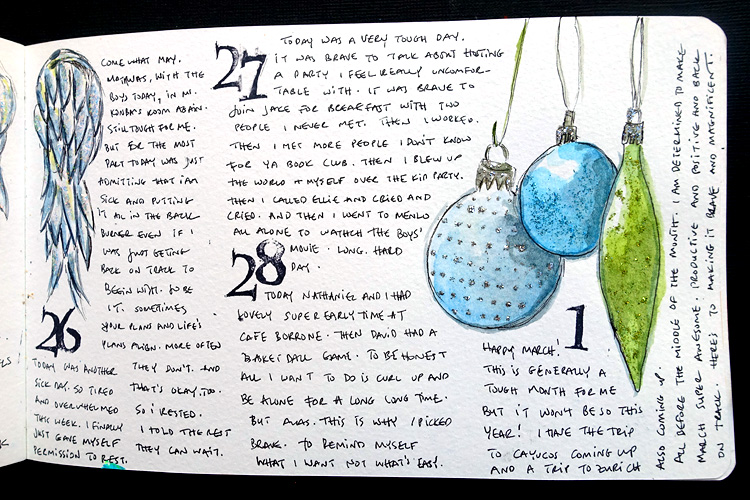 26
TODAY WAS ANOTHER
SICK DAY. SO TIRED
AND OVERWHELMED
THIS WEEK. I FINALLY
JUST GAVE MYSELF
PERMISSION TO REST.
COME WHAT MAY.
WITH THE
BOYS TODAY, IN M.
ROOM AGAIN.
STILL TOUGH FOR ME.
BUT FOR THE MOST
PART TODAY WAS JUST
ADMITTING THAT I AM
SICK AND PUTTING
IT ALL IN THE BACK
BURNER EVEN IF I
WAS JUST GETTING
BACK ON TRACK TO
BEGIN WITH. SO BE
IT. SOMETIMES
YOUR PLANS AND LIFE'S
PLANS ALIGN. MORE OFTEN
THEY DON'T. AND
THAT'S OKAY, TOO.
SO I RESTED.
I TOLD THE REST
THEY CAN WAIT.
27
TODAY WAS A VERY TOUGH DAY.
IT WAS BRAVE TO TALK ABOUT HOSTING
A PARTY I FEEL REALLY UNCOMFOR-
TABLE WITH. IT WAS BRAVE TO
JOIN JAKE FOR BREAKFAST WITH TWO
PEOPLE I NEVER MET. THEN I WORKED.
THEN I MET MORE PEOPLE I DON'T KNOW
FOR YA BOOK CLUB. THEN I BLEW UP
THE WORLD MYSELF OVER THE KID PARTY.
THEN I CALLED ELLIE AND CRIED AND
CRIED. AND THEN I WENT TO MENLO
ALL ALONE TO WATCH THE BOYS'
MOVIE. LONG. HARD
DAY.
28
TODAY NATHANIEL AND I HAD
LOVELY SUPER EARLY TIME AT
CAFE BORRONE. THEN DAVID HAD A
BASKETBALL GAME. TO BE HONEST
ALL I WANT TO DO IS CURL UP AND
BE ALONE FOR A LONG LONG TIME.
BUT ALAS. THIS IS WHY I PICKED
BRAVE. TO REMIND MYSELF
WHAT I WANT NOT WHAT'S EASY.
1
HAPPY MARCH!
THIS IS GENERALLY A
TOUGH MONTH FOR ME
BUT IT WON'T BE SO THIS
YEAR! I HAVE THE TRIP
TO CAYUCOS COMING UP
AND A TRIP TO ZURICH
ALSO COMING UP.
ALL BEFORE THE MIDDLE OF THE MONTH. I AM DETERMINED TO MAKE
MARCH SUPER AWESOME. PRODUCTIVE AND POSITIVE AND BACK
ON TRACK. HERE'S TO MAKING IT BRAVE AND MAGNIFICENT.